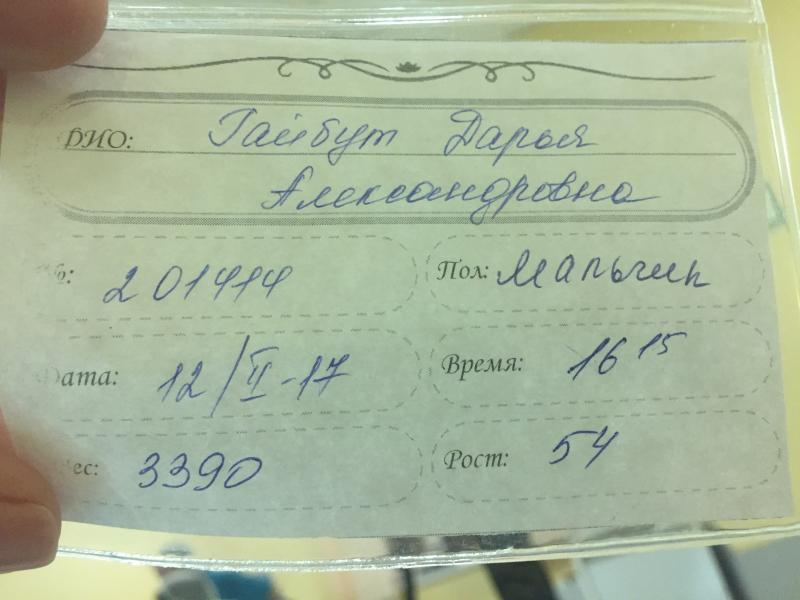 ФИО: Гайбут Дарья
Александровна
№: 201414 Пол: Мальчик
Дата: 12/II-17 Время: 16 15
Вес: 3390 Рост: 54